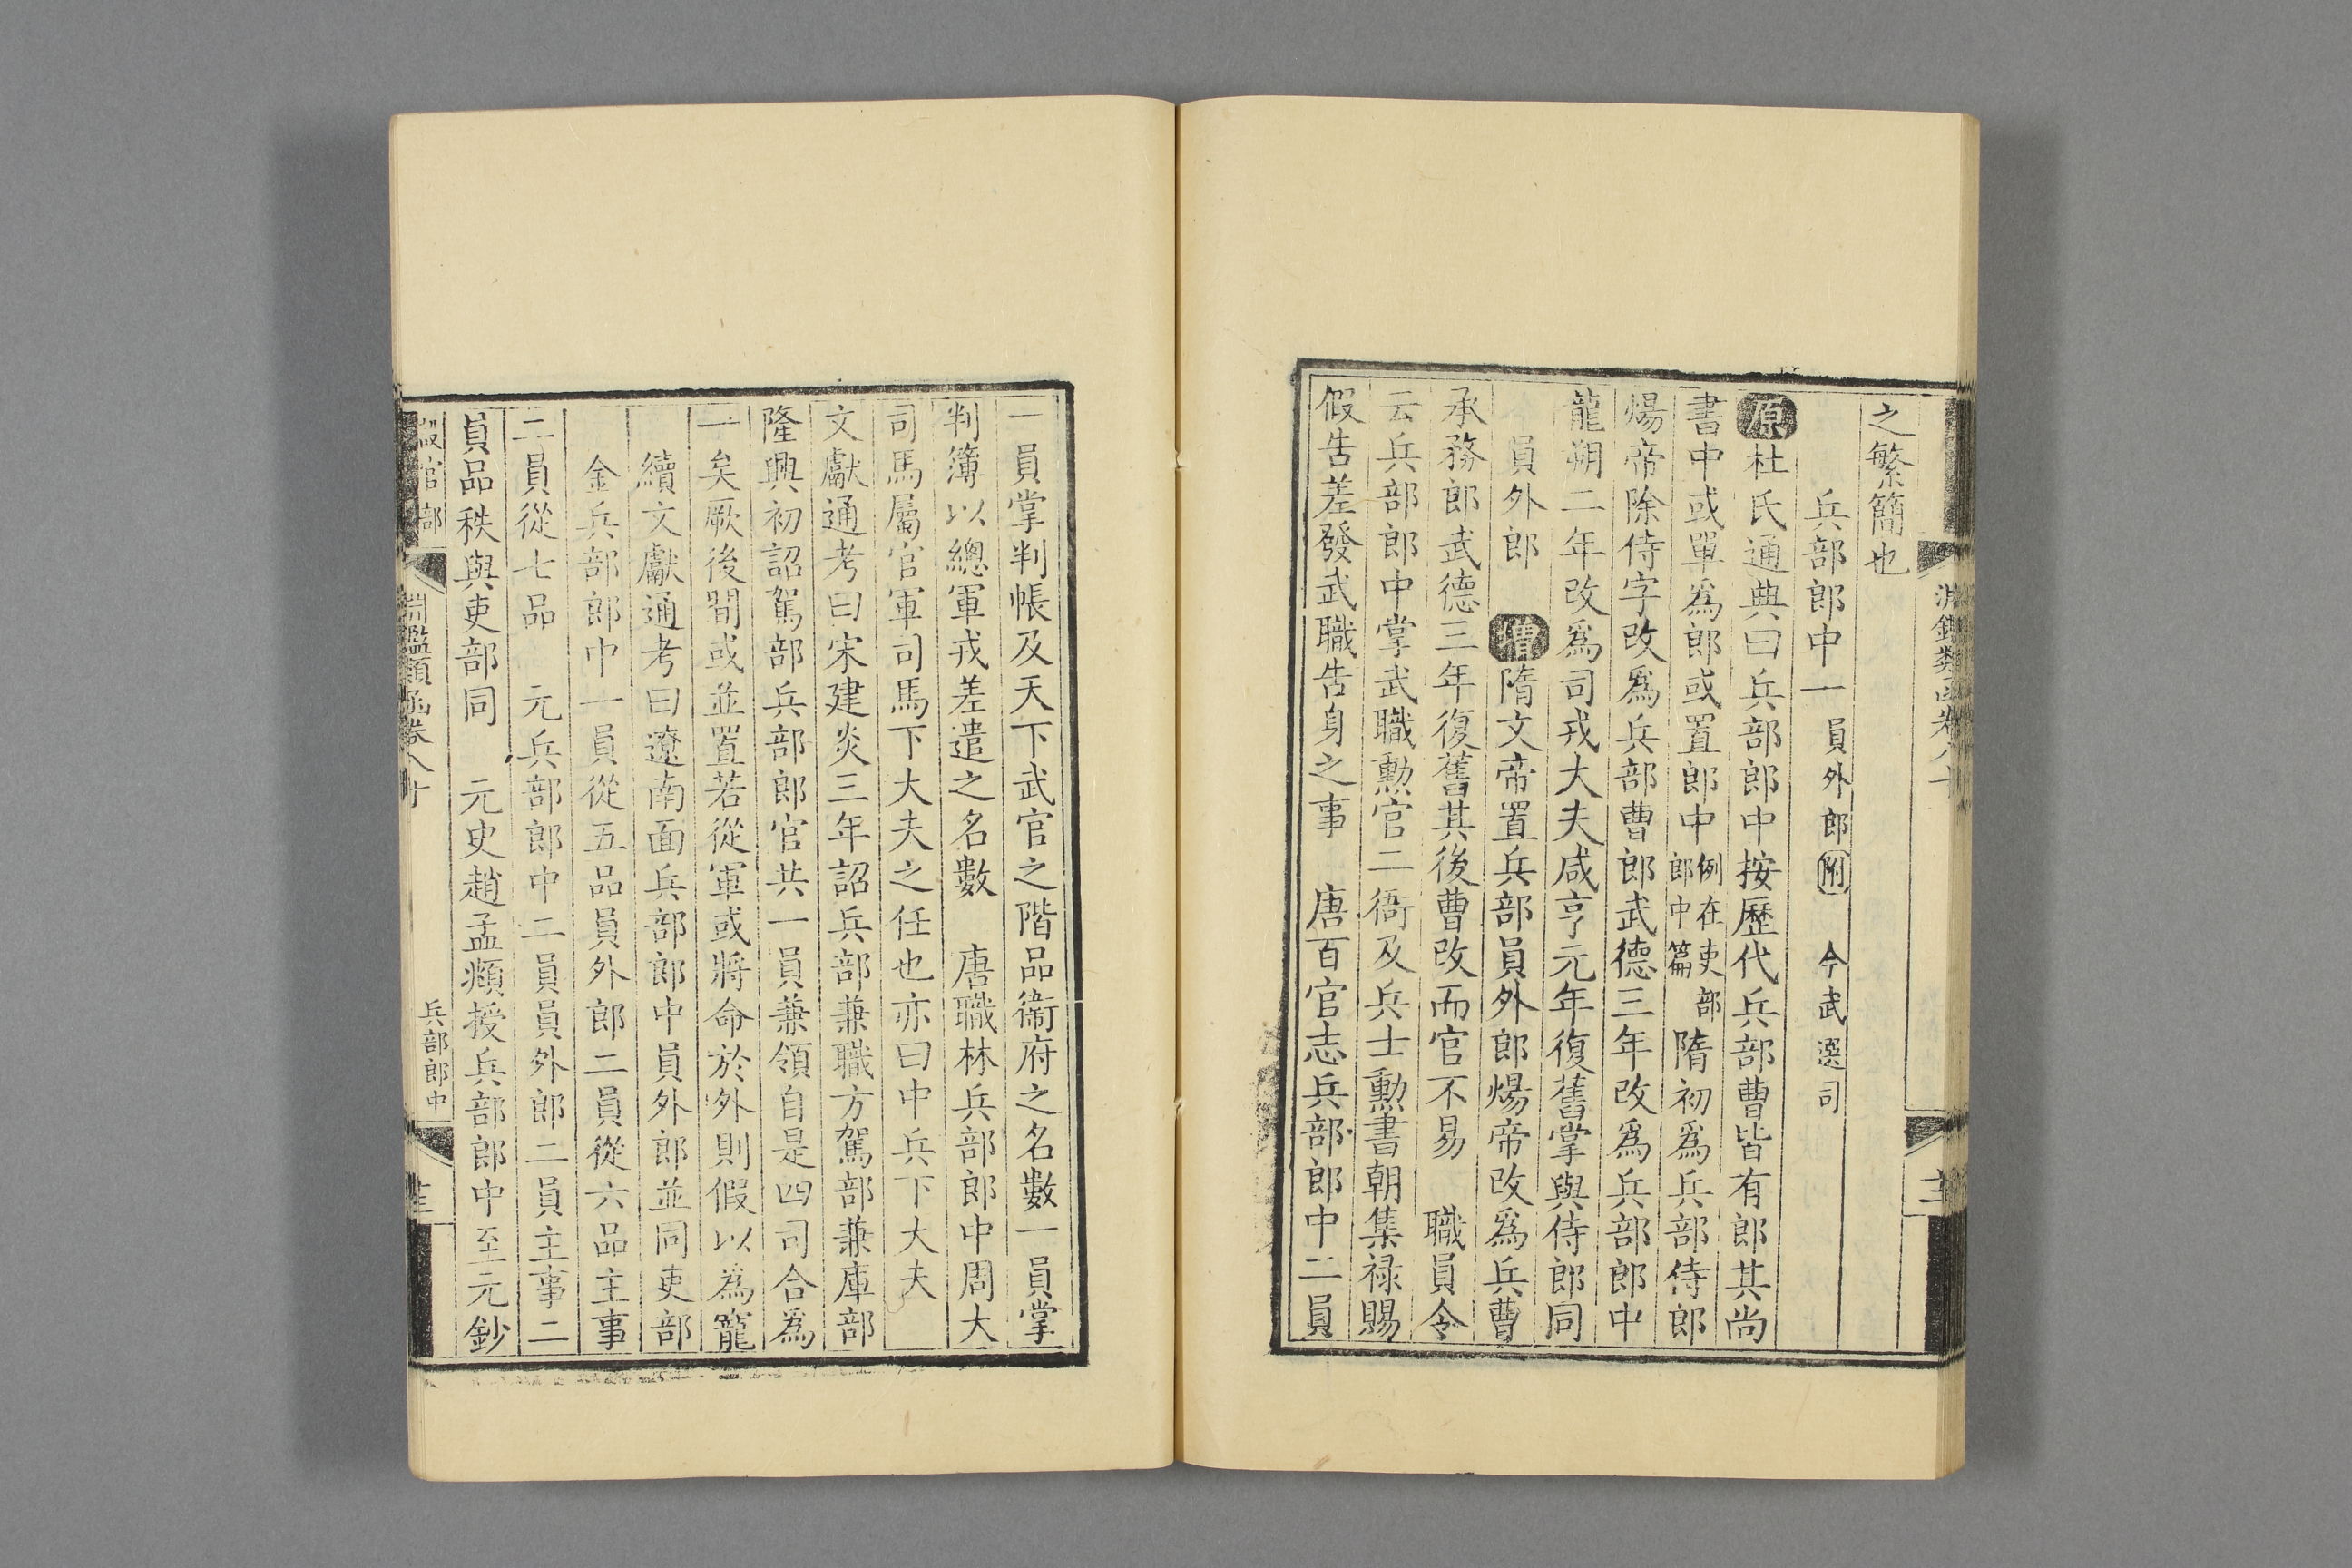 淵鑑類函卷八十
之繁簡也
兵部郎中一員外郎附 今武選司
原杜氏通典曰兵部郎中按歷代兵部曹皆有郎其尚
書中或單爲郎或置郎中例在吏部郎中篇隋初爲兵部侍郎
煬帝除侍字改爲兵部曹郎武德三年改爲兵部郎中
龍朔二年改爲司戎大夫咸亨元年復舊掌與侍郎同
員外郎 增隋文帝置兵部員外郎煬帝改爲兵曹
承務郎武德三年復舊其後曹改而官不易 職員令
云兵部郎中掌武職勲官二衙及兵士勲書朝集禄賜
假告差發武職告身之事 唐百官志兵部郎中二員
一員掌判帳及天下武官之階品衞府之名數一員掌
判簿以總軍戎差遣之名數 唐職林兵部郎中周大
司馬屬官軍司馬下大夫之任也亦曰中兵下大夫
文獻通考曰宋建炎三年詔兵部兼職方駕部兼庫部
隆興初詔駕部兵部郎官共一員兼領自是四司合爲
一矣厥後間或並置若從軍或將命於外則假以爲寵
續文獻通考曰遼南面兵部郎中員外郎並同吏部
金兵部郎中一員從五品員外郎二員從六品主事
二員從七品 元兵部郎中二員員外郎二員主事二
員品秩與吏部同 元史趙孟頫授兵部郎中至元鈔
設官部 淵鑑類函卷八十 兵部郎中